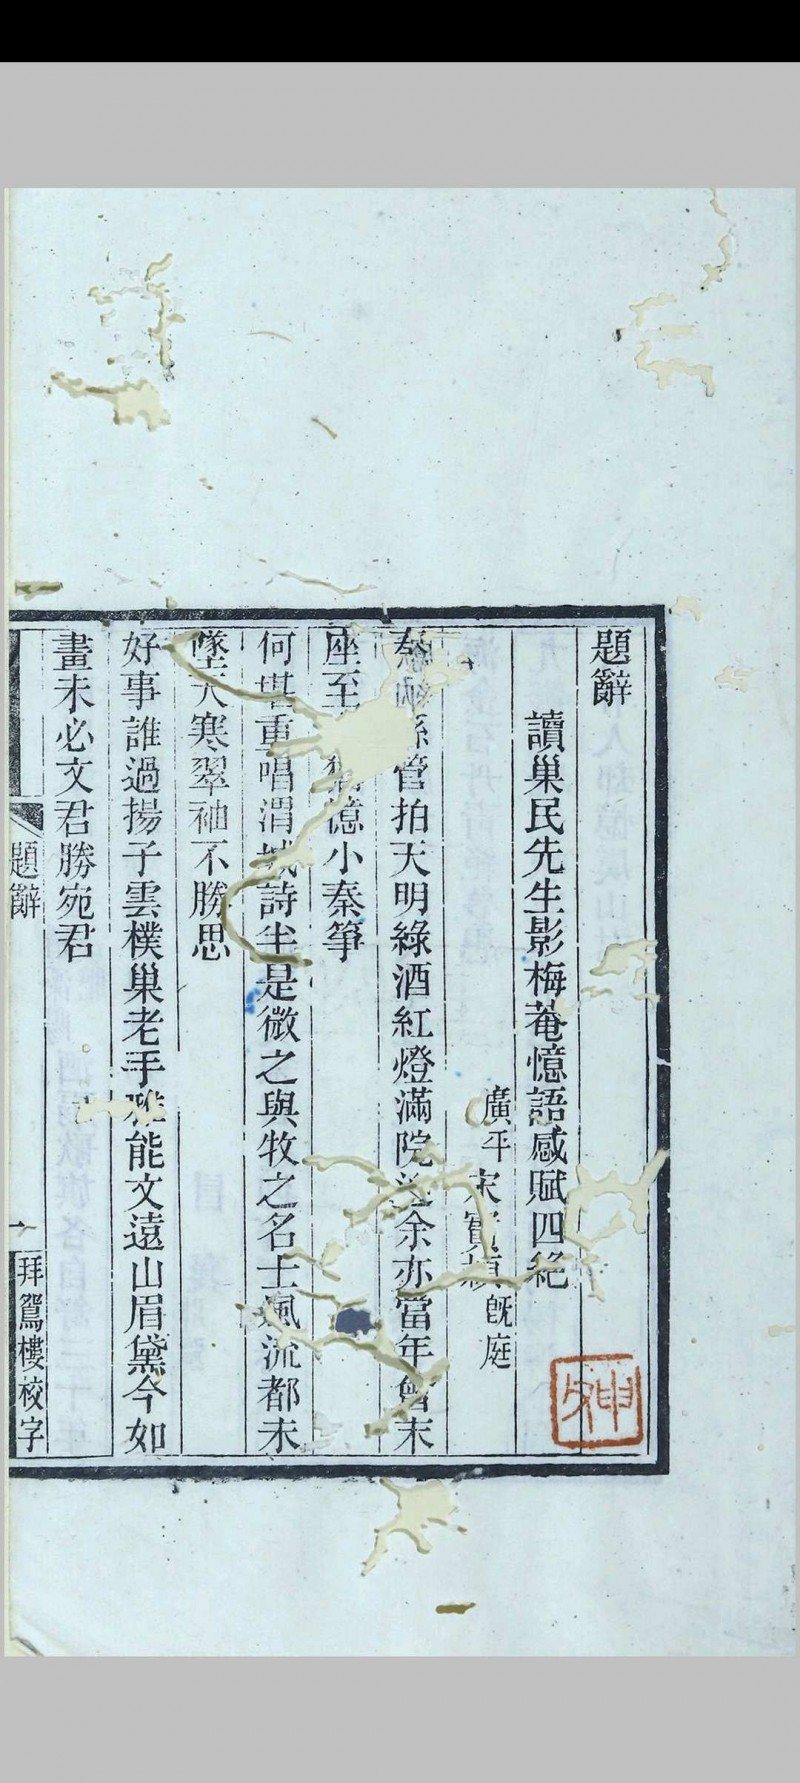 題辭
讀巢民先生影梅菴憶語感賦四絕
廣平宋實穎既庭
管拍天明綠酒紅燈滿院余亦當年曾末
座至憶小秦箏
何堪重唱渭城詩半是微之與牧之名士風流都未
墜天寒翠袖不勝思
好事誰過揚子雲樸巢老手雅能文遠山眉黛今如
畫未必文君勝宛君
題辭
一
拜鴛樓校字